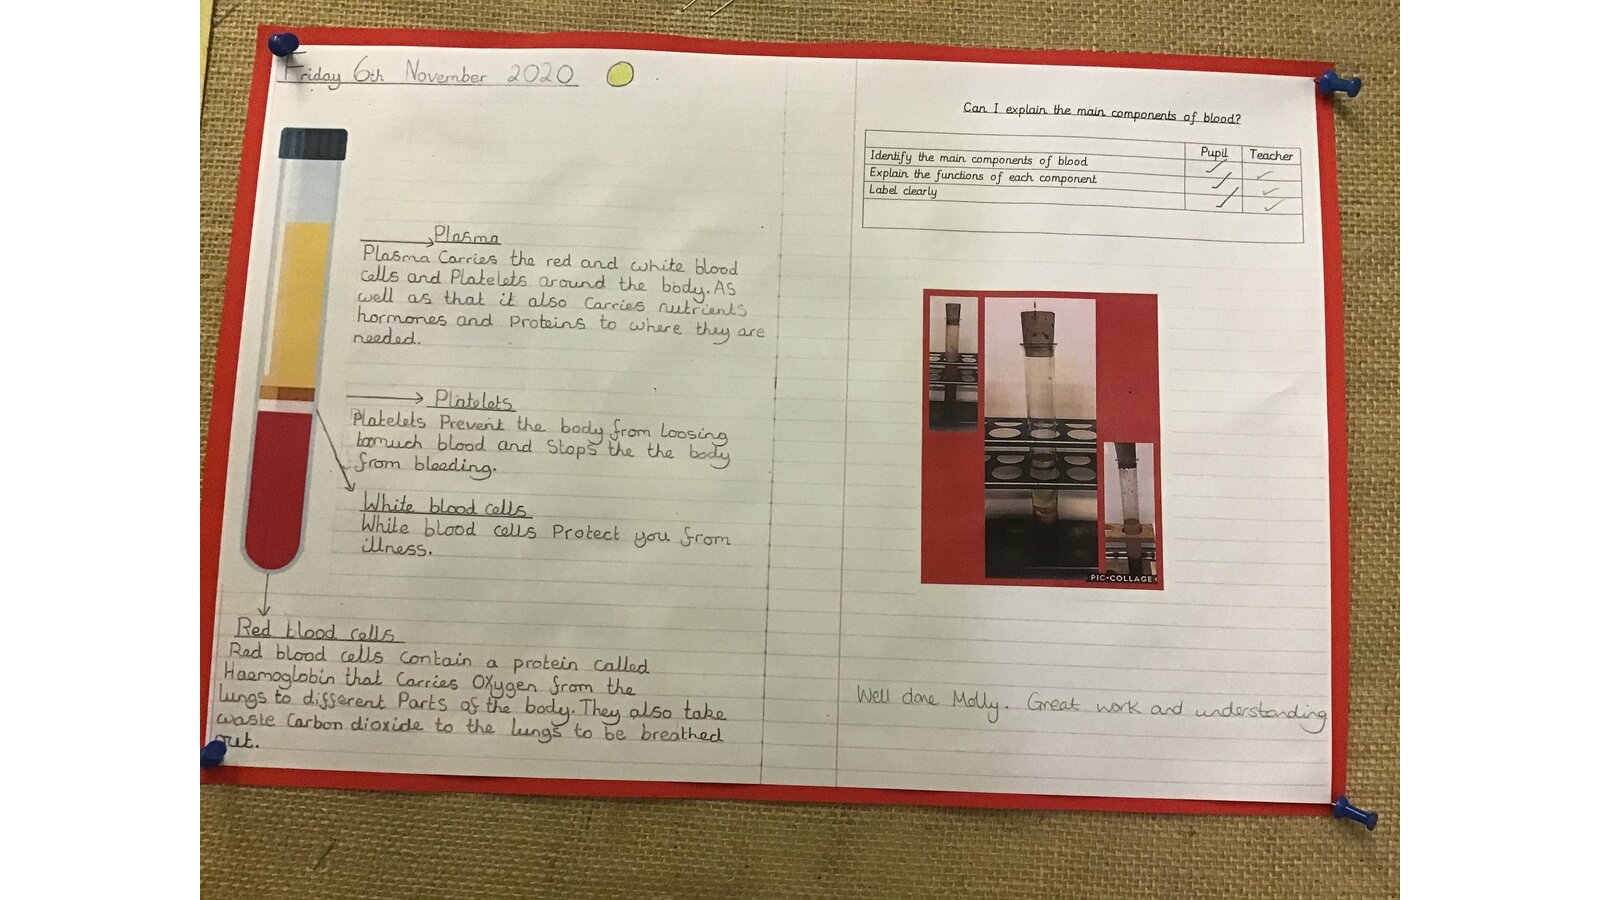 Friday 6th November 2020
Plasma
Plasma Carries the red and white blood
cells and Platelets around the body. As
well as that it also Carries nutrients
hormones and Proteins to where they are
needed.
Platelets
Platelets Prevent the body from loosing
tomuch blood and Stops the the body
from bleeding.
White blood cells
White blood cells Protect you from
illness.
Red blood cells
Red blood cells contain a protein called
Haemoglobin that Carries Oxygen from the
lungs to different Parts of the body. They also take
waste Carbon dioxide to the lungs to be breathed
out.
Can I explain the main components of blood?
Pupil Teacher
Identify the main components of blood
Explain the functions of each component
Label clearly
PIC•COLLAGE
Well done Molly. Great work and understanding